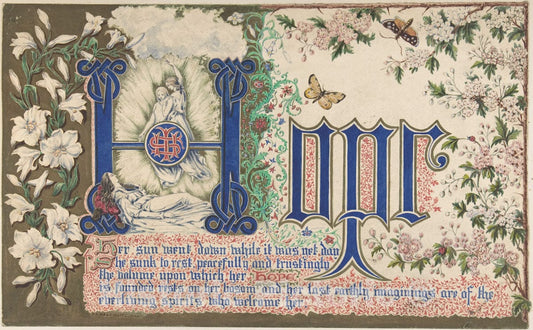 Hope
Her sun went down while it was yet day
She sunk to rest, peacefully and trustingly
the volume upon which her Hope
is founded, rests on her bosom and her last earthly imaginings are of the
everliving spirits who welcome her.